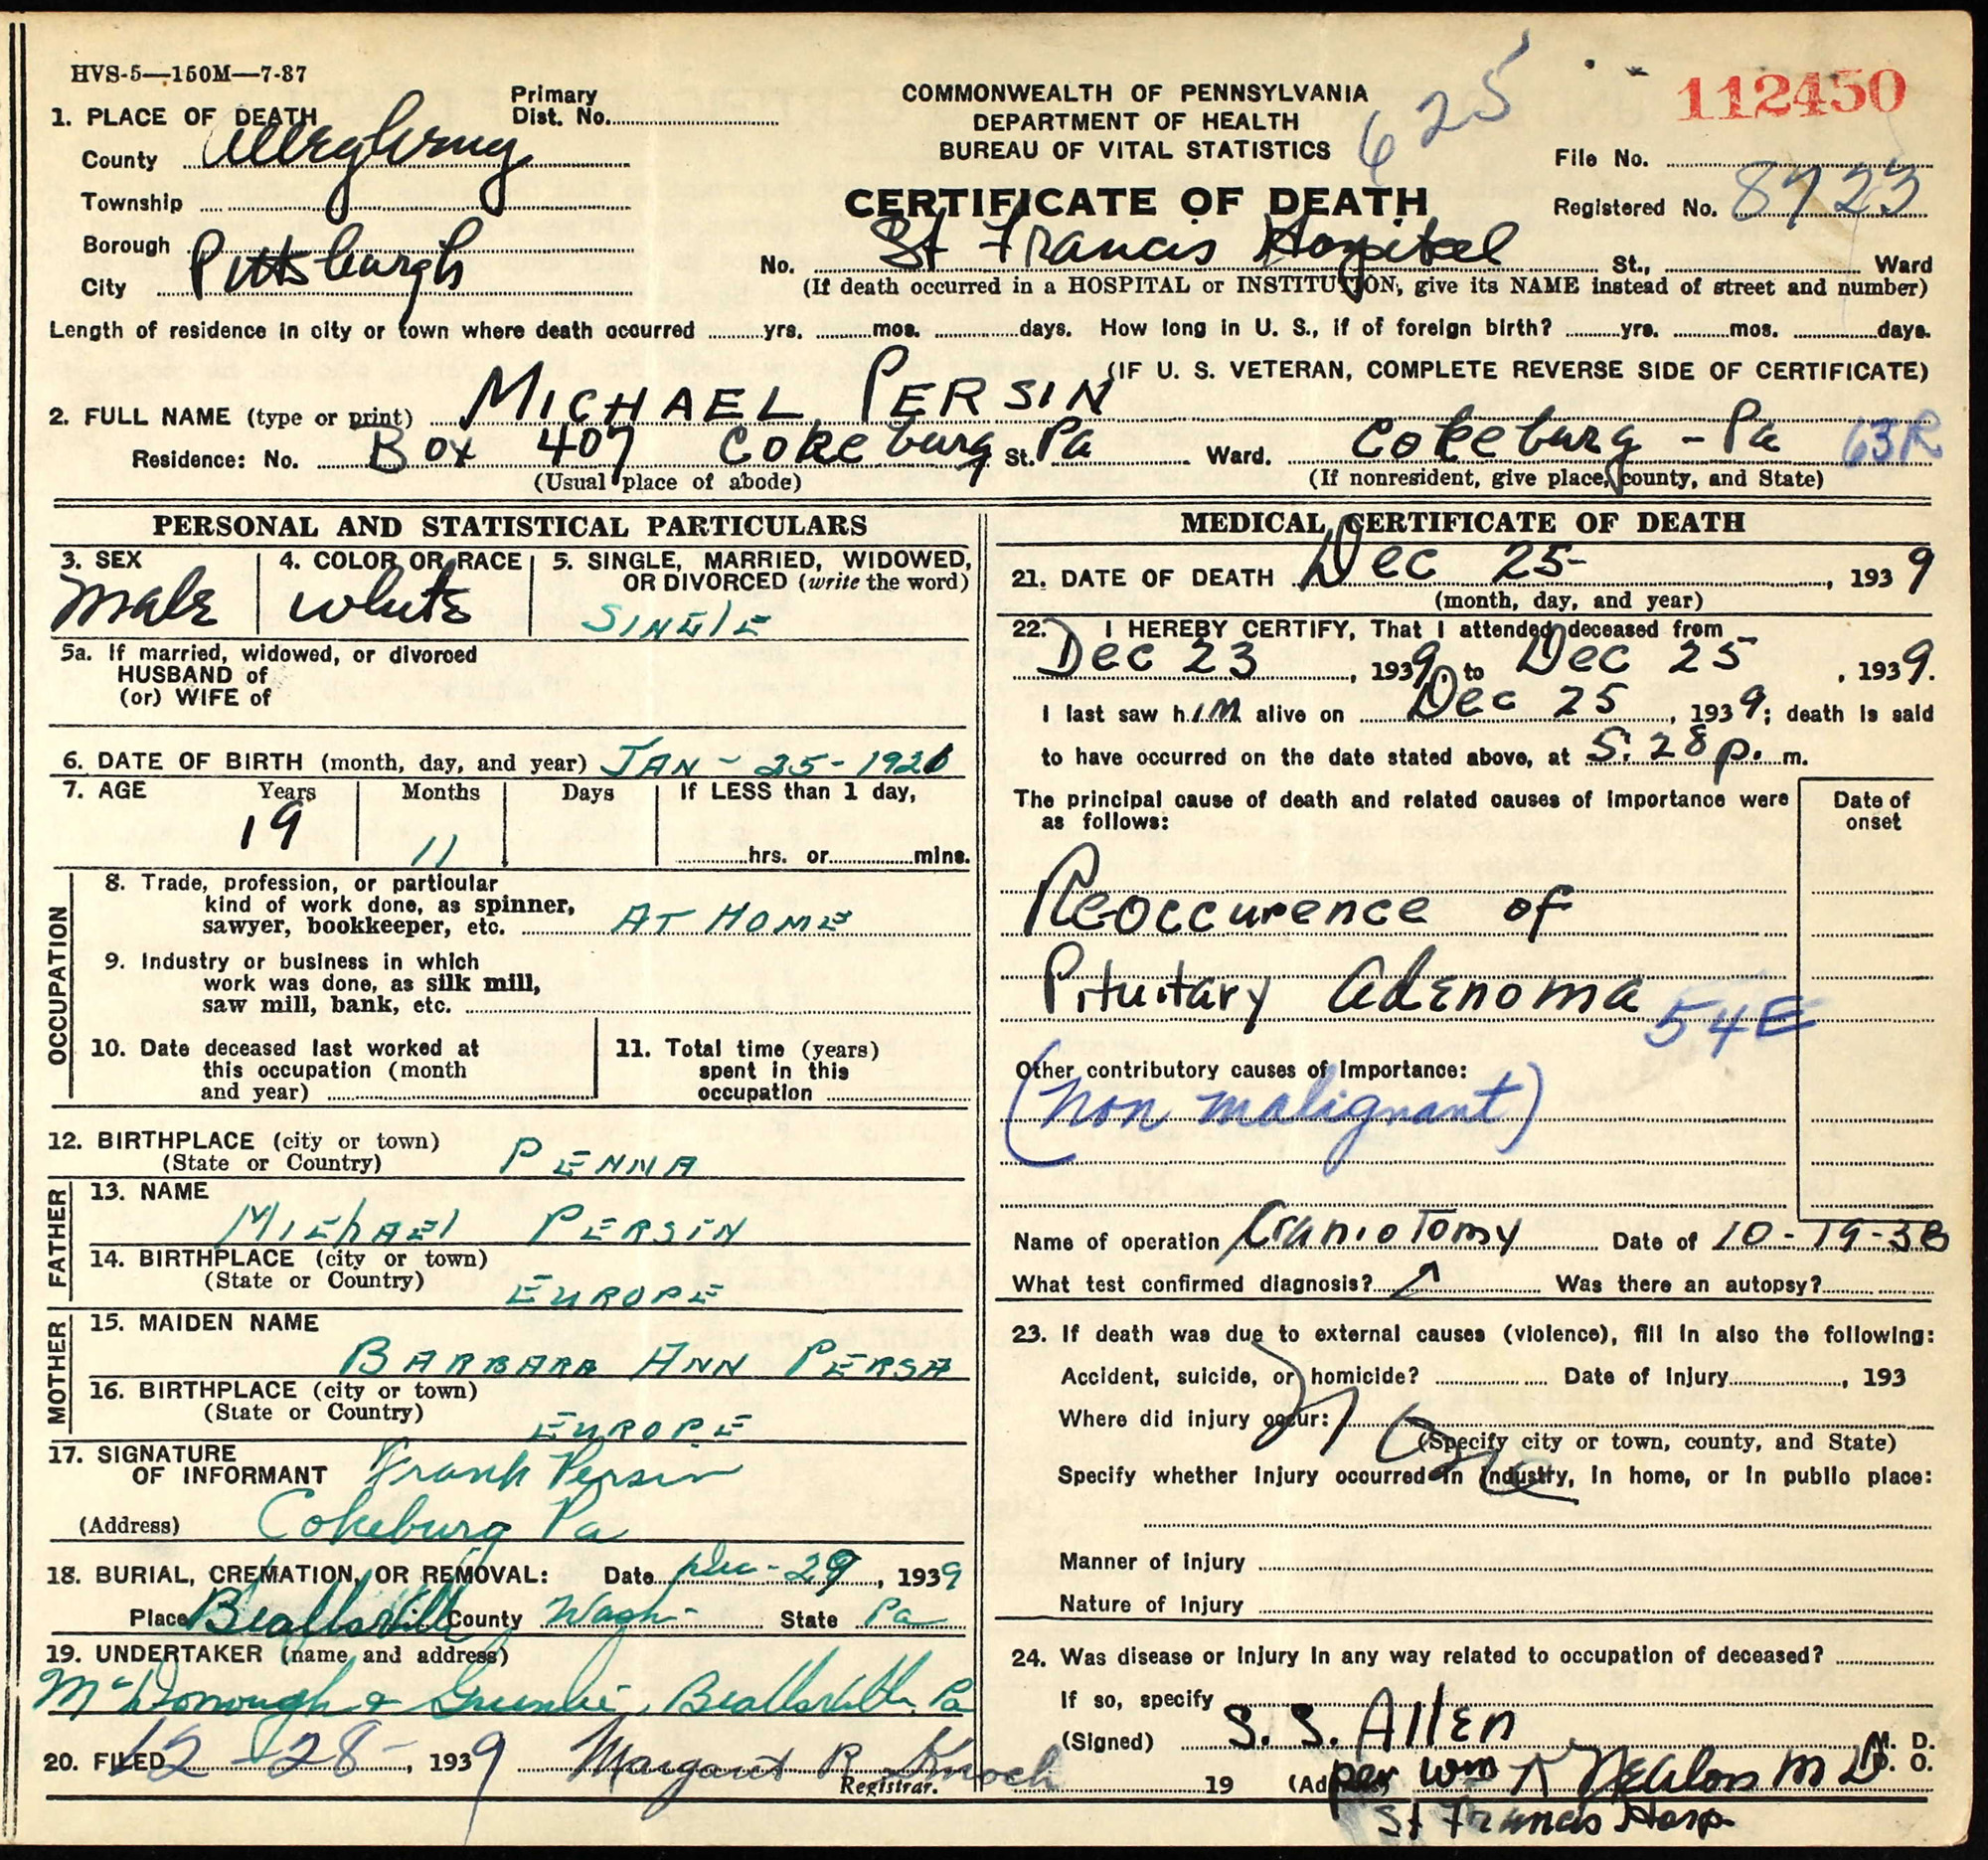 HVS-5—150M—7-37
112450
625
COMMONWEALTH OF PENNSYLVANIA
DEPARTMENT OF HEALTH
BUREAU OF VITAL STATISTICS
CERTIFICATE OF DEATH
Primary Dist. No.
File No.
Registered No. 8723
1. PLACE OF DEATH
County Allegheny
Township
Borough
City Pittsburgh
No. St Francis Hospital St., Ward
(If death occurred in a HOSPITAL or INSTITUTION, give its NAME instead of street and number)
Length of residence in city or town where death occurred yrs. mos. days. How long in U. S., if of foreign birth? yrs. mos. days.
(IF U. S. VETERAN, COMPLETE REVERSE SIDE OF CERTIFICATE)
2. FULL NAME (type or print) MICHAEL PERSIN
Residence: No. Box 407 Cokeburg St. Pa Ward. Cokeburg - Pa 63R
(Usual place of abode) (If nonresident, give place, county, and State)
PERSONAL AND STATISTICAL PARTICULARS
3. SEX Male
4. COLOR OR RACE white
5. SINGLE, MARRIED, WIDOWED, OR DIVORCED (write the word) SINGLE
5a. If married, widowed, or divorced
HUSBAND of
(or) WIFE of
6. DATE OF BIRTH (month, day, and year) JAN - 25 - 1920
7. AGE Years 19 Months 11 Days If LESS than 1 day,
hrs. or mins.
OCCUPATION
8. Trade, profession, or particular
kind of work done, as spinner,
sawyer, bookkeeper, etc. AT HOME
9. Industry or business in which
work was done, as silk mill,
saw mill, bank, etc.
10. Date deceased last worked at
this occupation (month
and year)
11. Total time (years)
spent in this
occupation
12. BIRTHPLACE (city or town)
(State or Country) PENNA
FATHER
13. NAME
MICHAEL PERSIN
14. BIRTHPLACE (city or town)
(State or Country) EUROPE
MOTHER
15. MAIDEN NAME
BARBARA ANN PERSA
16. BIRTHPLACE (city or town)
(State or Country) EUROPE
17. SIGNATURE
OF INFORMANT Frank Persin
(Address) Cokeburg Pa
18. BURIAL, CREMATION, OR REMOVAL: Date Dec - 29, 1939
Place Beallsville County Wash- State Pa
19. UNDERTAKER (name and address)
McDonough & Beallsville Pa
20. FILED 12-28-, 1939 Margaret R Knoch
Registrar.
MEDICAL CERTIFICATE OF DEATH
21. DATE OF DEATH Dec 25-, 1939
(month, day, and year)
22. I HEREBY CERTIFY, That I attended deceased from
Dec 23, 1939, to Dec 25, 1939.
I last saw him alive on Dec 25, 1939; death is said
to have occurred on the date stated above, at 5:28 p. m.
The principal cause of death and related causes of importance were
as follows:
Date of
onset
Reoccurence of
Pituitary Adenoma 54E
Other contributory causes of importance:
(non malignant)
Name of operation Craniotomy Date of 10-19-38
What test confirmed diagnosis? Was there an autopsy?
23. If death was due to external causes (violence), fill in also the following:
Accident, suicide, or homicide? Date of injury , 193
Where did injury occur:
(Specify city or town, county, and State)
Specify whether injury occurred in industry, in home, or in public place:
Manner of injury
Nature of injury
24. Was disease or injury in any way related to occupation of deceased?
If so, specify
(Signed) S. S. Allen M. D.
19 (Ad per Wm Nealon MD D. O.
St Francis Hosp